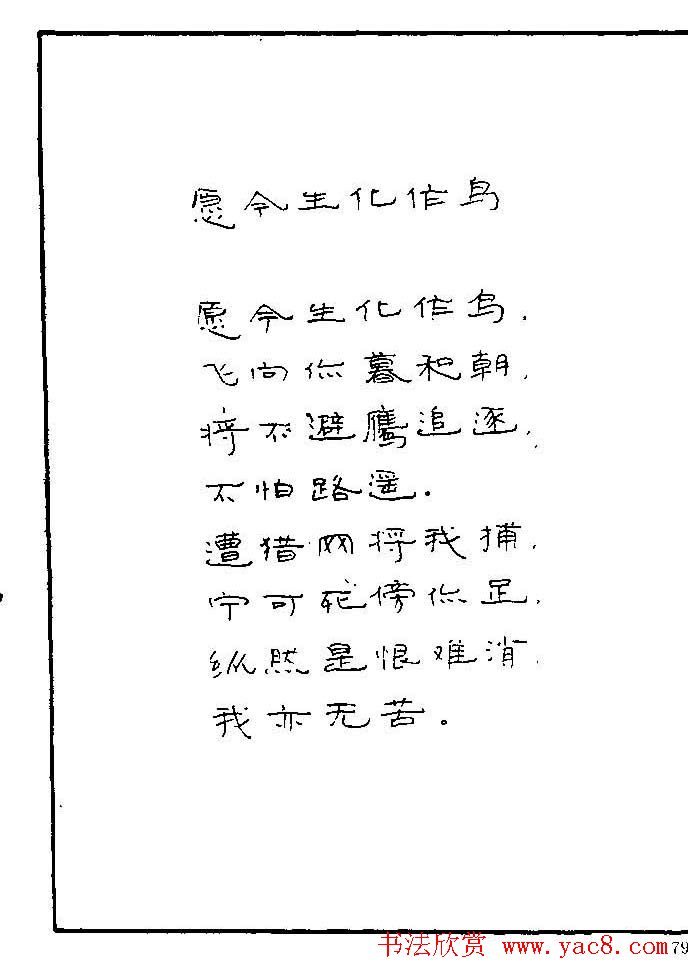 愿今生化作鸟
愿今生化作鸟，
飞向你暮和朝，
将不避鹰追逐，
不怕路遥．
遭猎网将我捕，
宁可死傍你足，
纵然是恨难消，
我亦无苦．
书法欣赏 www.yac8.com 79